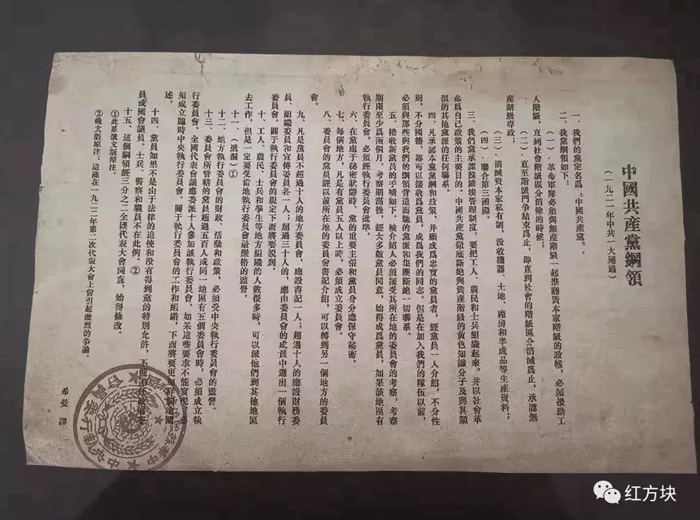 中國共產黨綱領
（一九二一年中共一大通過）
一、我們的黨定名爲『中國共產黨』。
二、我黨綱領如下：
（一）、革命軍隊必須與無產階級一起推翻資本家階級的政權，必須援助工
人階級，直到社會階級區分消除的時候；
（二）、直至階級鬥爭結束爲止，即直到社會的階級區分消滅爲止，承認無
產階級專政；
（三）、消滅資本家私有制，沒收機器、土地、廠房和半成品等生產資料；
（四）、聯合第三國際。
三、我們黨承認蘇維埃管理制度，要把工人、農民和士兵組織起來，并以社會革
命爲自己政策的主要目的。中國共產黨徹底斷絕與資產階級的黃色知識分子及與其類
似的其他黨派的任何聯系。
四、凡承認本黨黨綱和政策，并願成爲忠實的黨員者，經黨員一人介紹，不分性
別，不分國籍，都可以接收爲黨員，成爲我們的同志。但是在加入我們的隊伍以前，
必須與那些與我們的綱領背道而馳的黨派和集團斷絕一切聯系。
五、接收新黨員的手續如下：被介紹人必須接受其所在地的委員會的考察，考察
期限至少爲兩個月。考察期滿後，經大多數黨員同意，始得成爲黨員，如果該地區有
執行委員會，必須經執行委員會批準。
六、在黨處于秘密狀態時，黨的重要主張和黨員身分應保守秘密。
七、每個地方，凡是有黨員五人以上時，必須成立委員會。
八、委員會的黨員經以前所在地的委員會書記介紹，可以轉到另一個地方的委員
會。
九、凡是黨員不超過十人的地方委員會，應設書記一人；超過十人的應設財務委
員、組織委員和宣傳委員各一人；超過三十人的，應由委員會的成員中選出一個執行
委員會。關于執行委員會的規定下面將要說到。
十、工人、農民、士兵和學生等地方組織的人數很多時，可以派他們到其他地區
去工作，但是一定要受當地執行委員會最嚴格的監督。
十一、（遺漏）①
十二、地方執行委員會的財政、活動和政策，必須受中央執行委員會的監督。
十三、委員會所管轄的黨員超過五百人或同一地區有五個委員會時，必須成立執
行委員會。全國代表會議應委派十人參加該執行委員會，如果這些要求不能實現，必
須成立臨時中央執行委員會。關于執行委員會的工作和組織，下面將要更
述。
十四、黨員如果不是由于法律的迫使和沒有得到黨的特別允許，不能
員或國會議員。士兵、警察和職員不在此例。②
十五、這個綱領經三分之二全國代表大會同意，始得修改。
①此系俄文版原注。
②俄文版原注：這條在一九二二年第二次代表大會上曾引起激烈的爭論。
希曼 譯
红方块